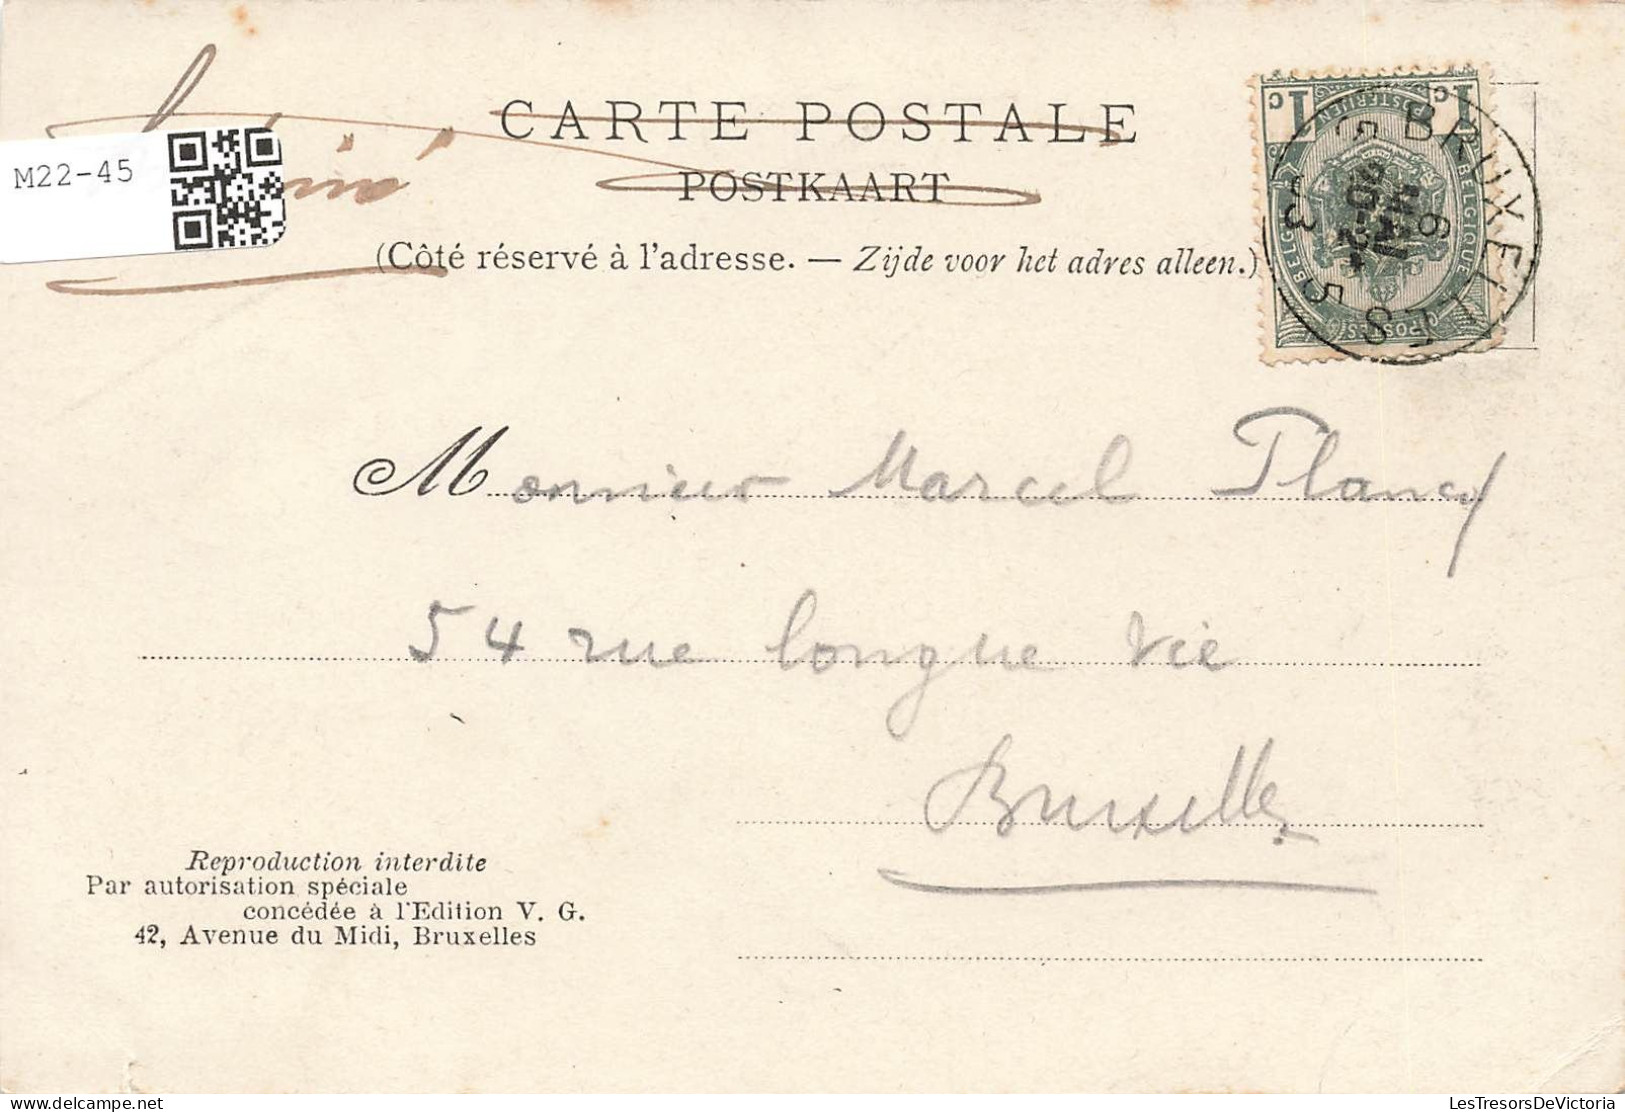 CARTE POSTALE
POSTKAART
M22-45
(Côté réservé à l'adresse. — Zijde voor het adres alleen.)
1c 1c
POSTERIJEN
BELGIQUE
POSTES
BRUXELLES
6
MAI
Monsieur Marcel Plancy
54 rue longue vie
Bruxelles
Reproduction interdite
Par autorisation spéciale
concédée à l'Edition V. G.
42, Avenue du Midi, Bruxelles
LesTresorsDeVictoria